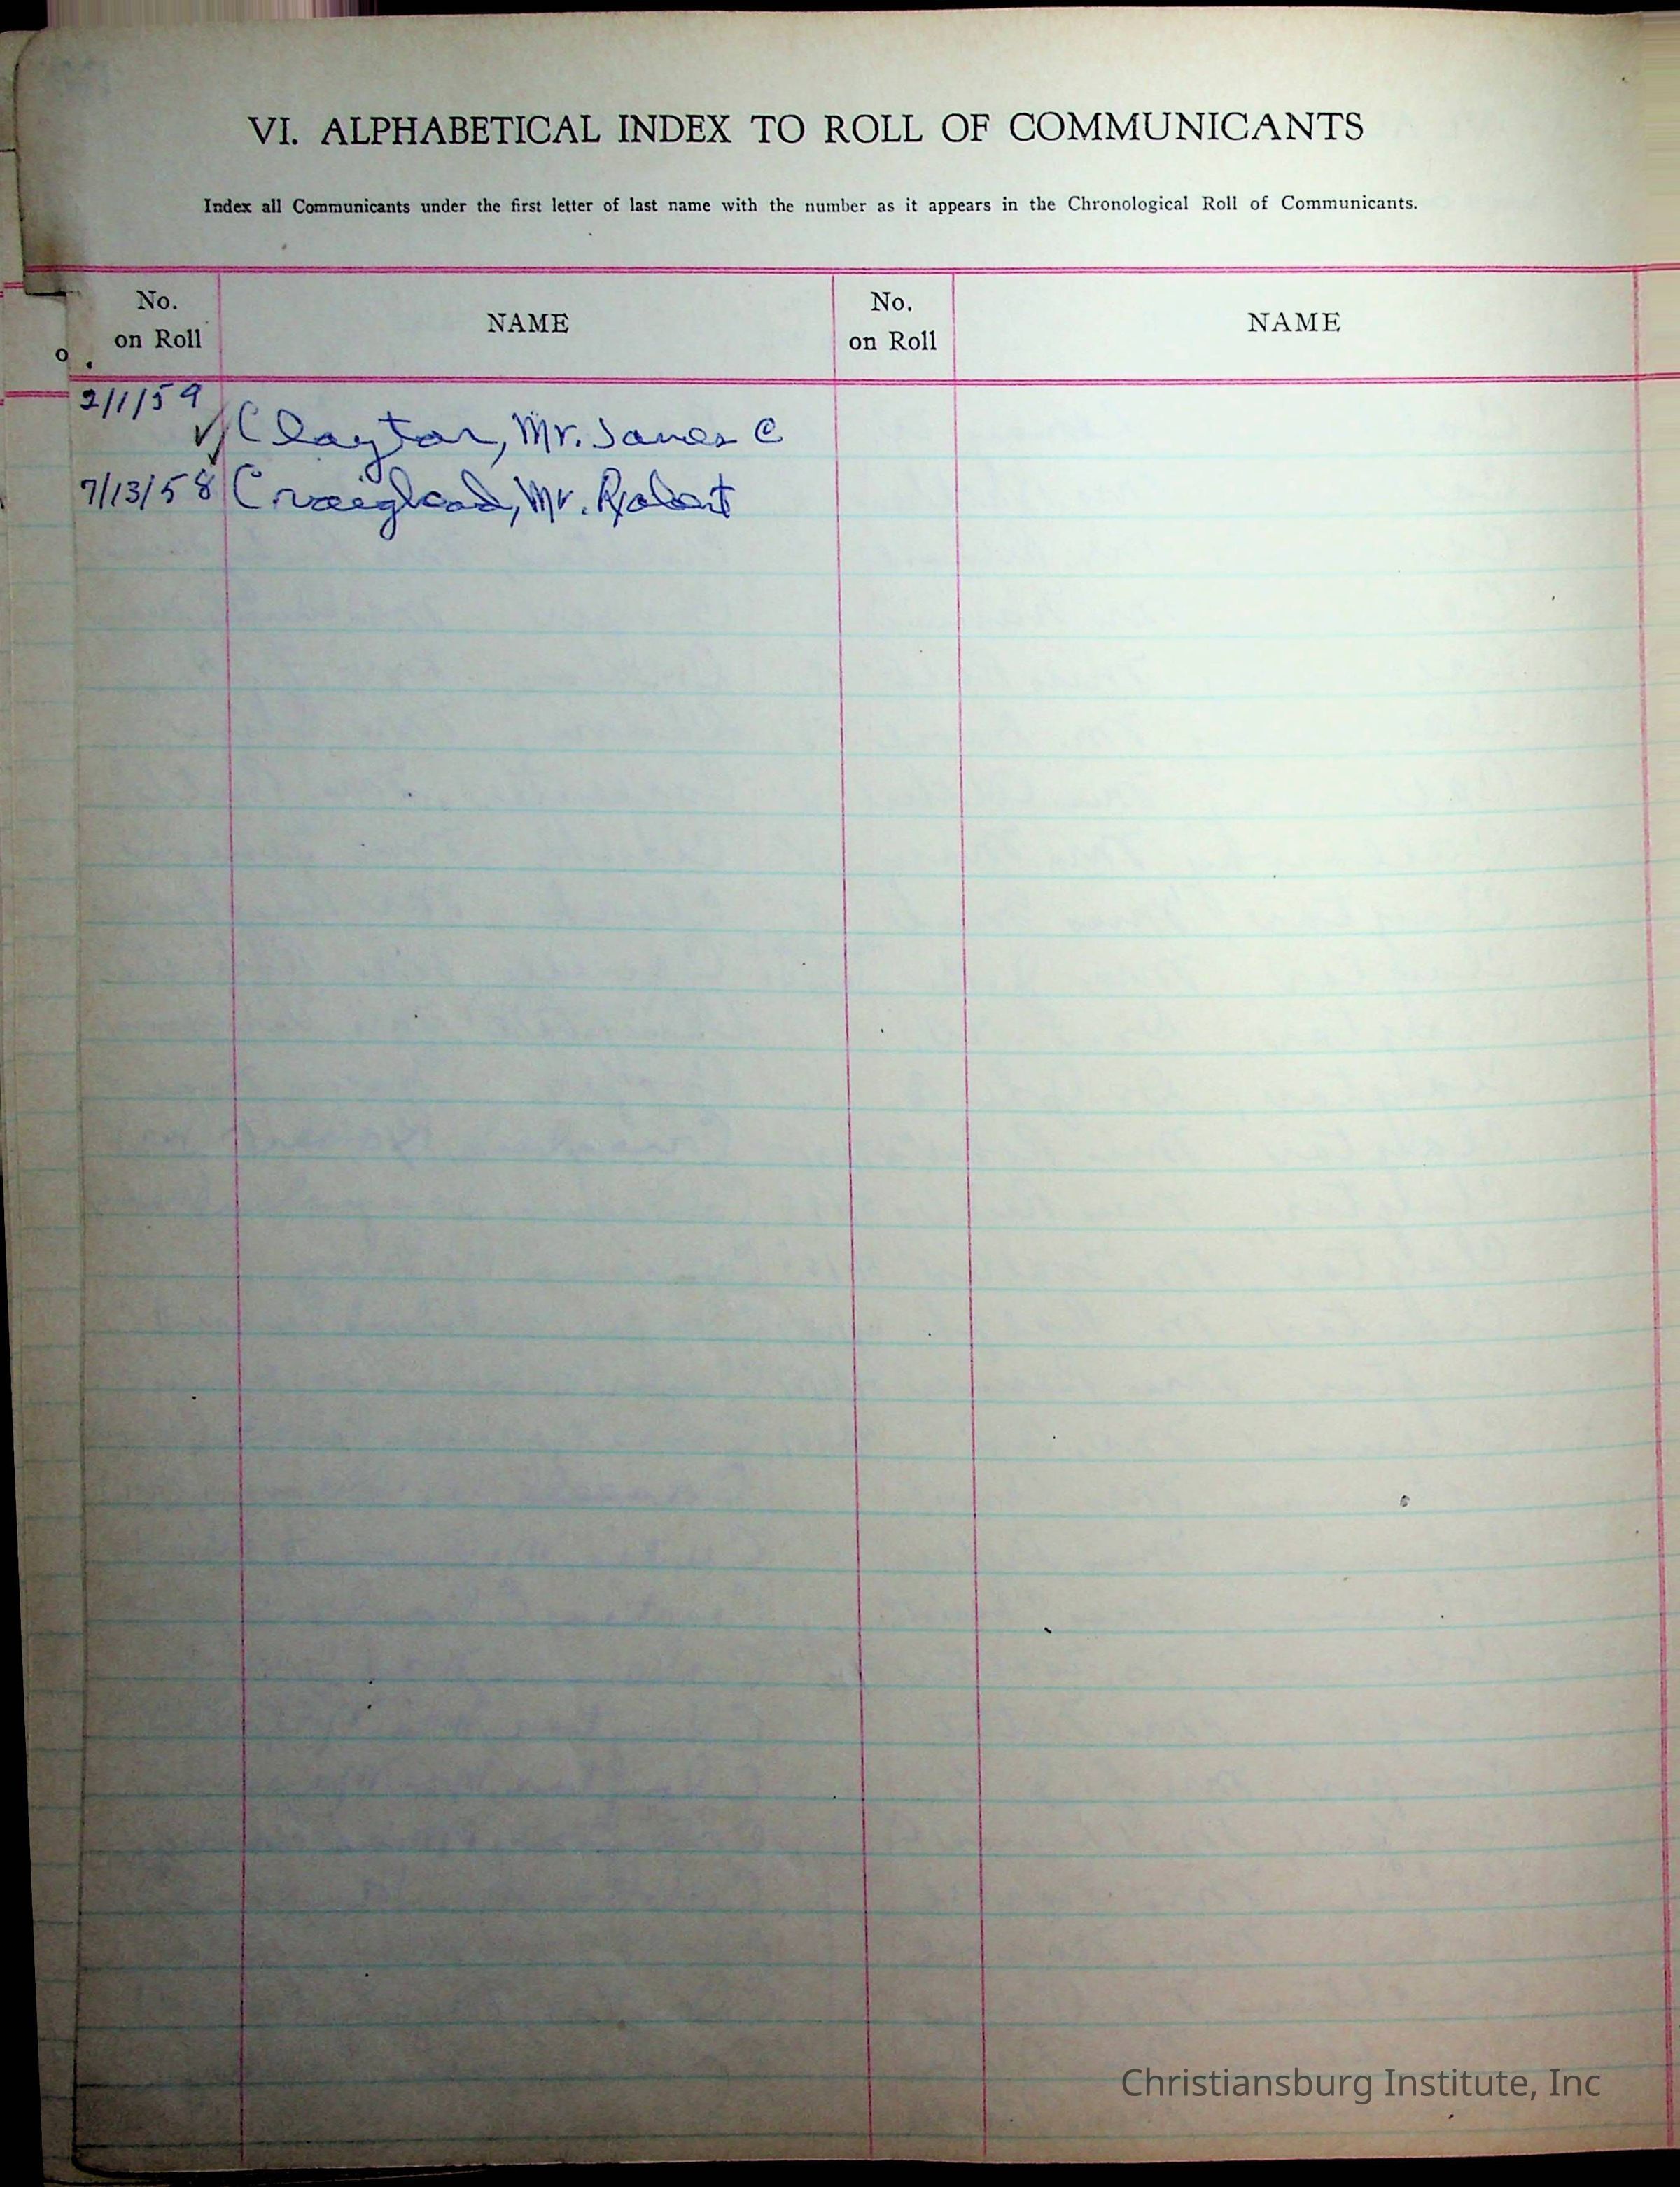 VI. ALPHABETICAL INDEX TO ROLL OF COMMUNICANTS
Index all Communicants under the first letter of last name with the number as it appears in the Chronological Roll of Communicants.
No. on Roll NAME No. on Roll NAME
2/1/59
✓ Clayton, Mr. James C
7/13/58 Craighead, Mr. Robert
Christiansburg Institute, Inc